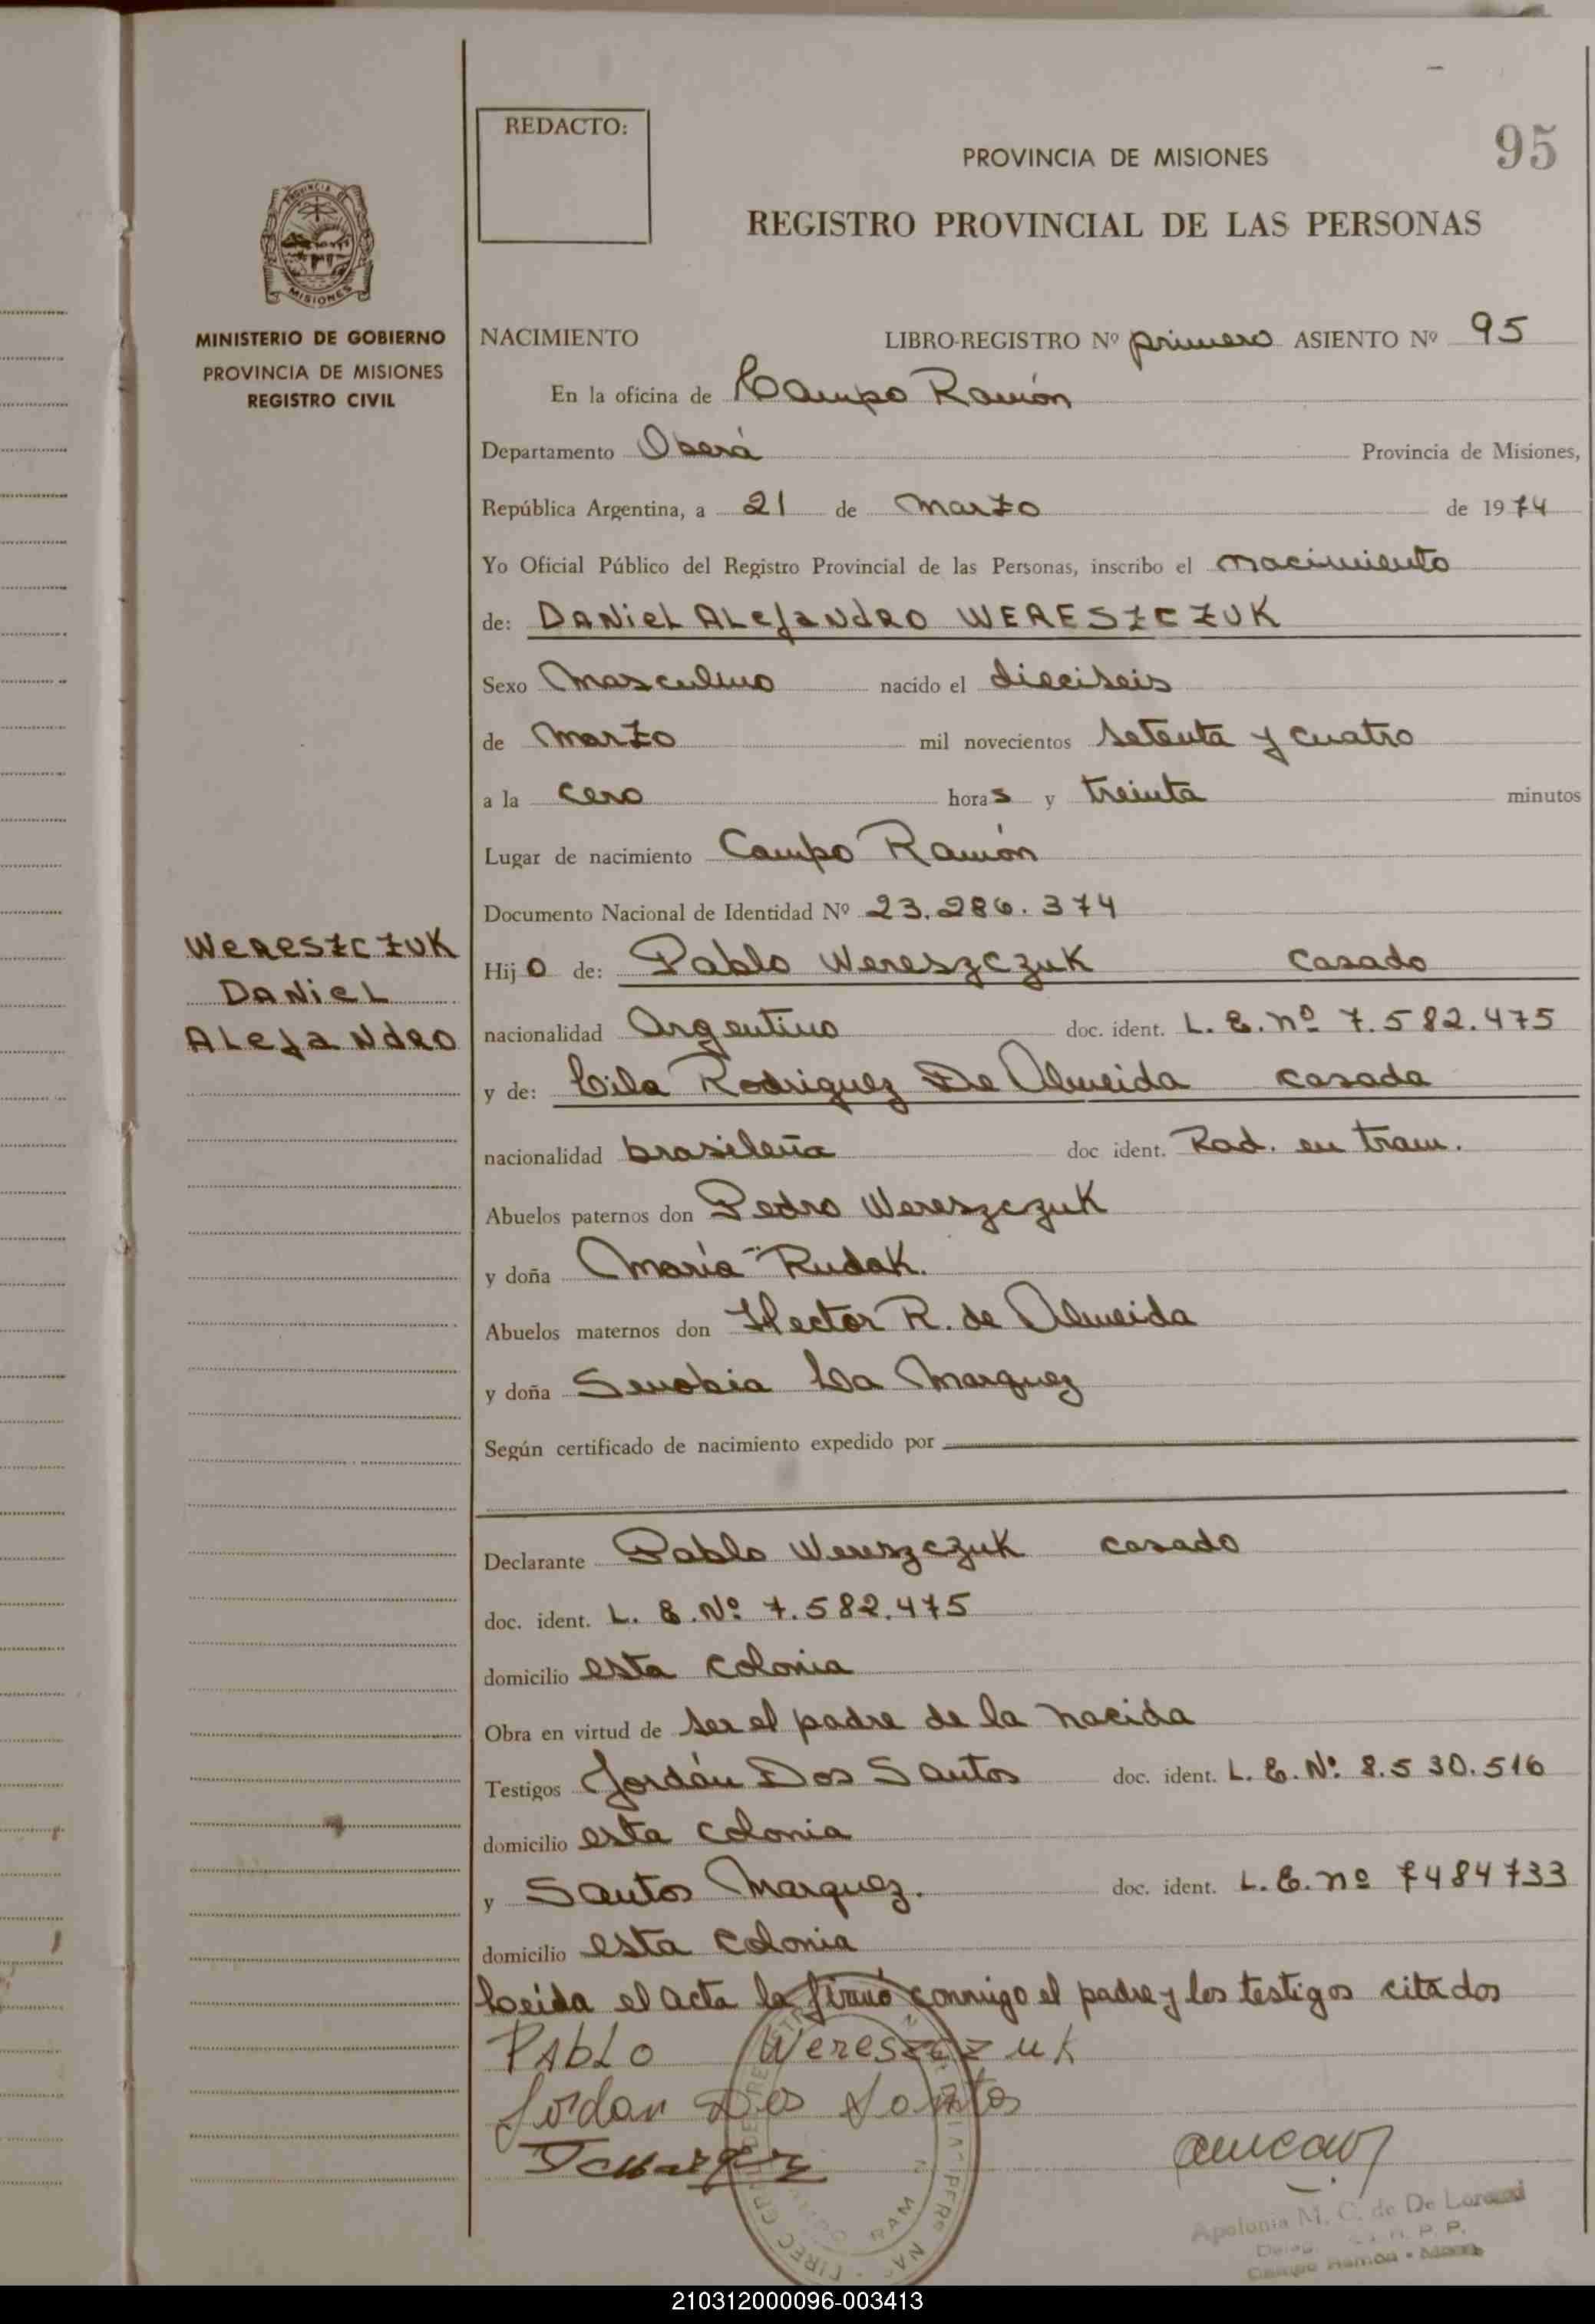 REDACTO:
PROVINCIA DE MISIONES
95
REGISTRO PROVINCIAL DE LAS PERSONAS
MISIONES
MINISTERIO DE GOBIERNO
PROVINCIA DE MISIONES
REGISTRO CIVIL
NACIMIENTO LIBRO-REGISTRO Nº primero ASIENTO Nº 95
En la oficina de Campo Ramón
Departamento Oberá Provincia de Misiones,
República Argentina, a 21 de Marzo de 1974
Yo Oficial Público del Registro Provincial de las Personas, inscribo el nacimiento
de: DANieL ALejandRO WERESZCZUK
Sexo Masculino nacido el dieciseis
de Marzo mil novecientos setenta y cuatro
a la cero horas y treinta minutos
Lugar de nacimiento Campo Ramón
Documento Nacional de Identidad Nº 23.286.374
WeReSZCZUK
DANieL
ALejaNdRO
Hijo de: Pablo Wereszczuk casado
nacionalidad Argentino doc. ident. L. E. nº 7.582.475
y de: Lila Rodriguez De Almeida casada
nacionalidad brasileña doc ident. Rad. en tram.
Abuelos paternos don Pedro Wereszczuk
y doña María Rudak.
Abuelos maternos don Hector R. de Almeida
y doña Senobia La Marquez
Según certificado de nacimiento expedido por
Declarante Pablo Wereszczuk casado
doc. ident. L. E. Nº 7.582.475
domicilio esta colonia
Obra en virtud de ser el padre de la nacida
Testigos Jordán Dos Santos doc. ident. L. E. Nº 8.530.516
domicilio esta colonia
y Santos Marquez. doc. ident. L. E. nº 7484733
domicilio esta colonia
Leída el acta la firmó conmigo el padre y los testigos citados
PAbLo Wereszczuk
Jordan Dos Santos
Apolonia M. C. de De Lorenzi
Campo Ramón - Mnes
210312000096-003413